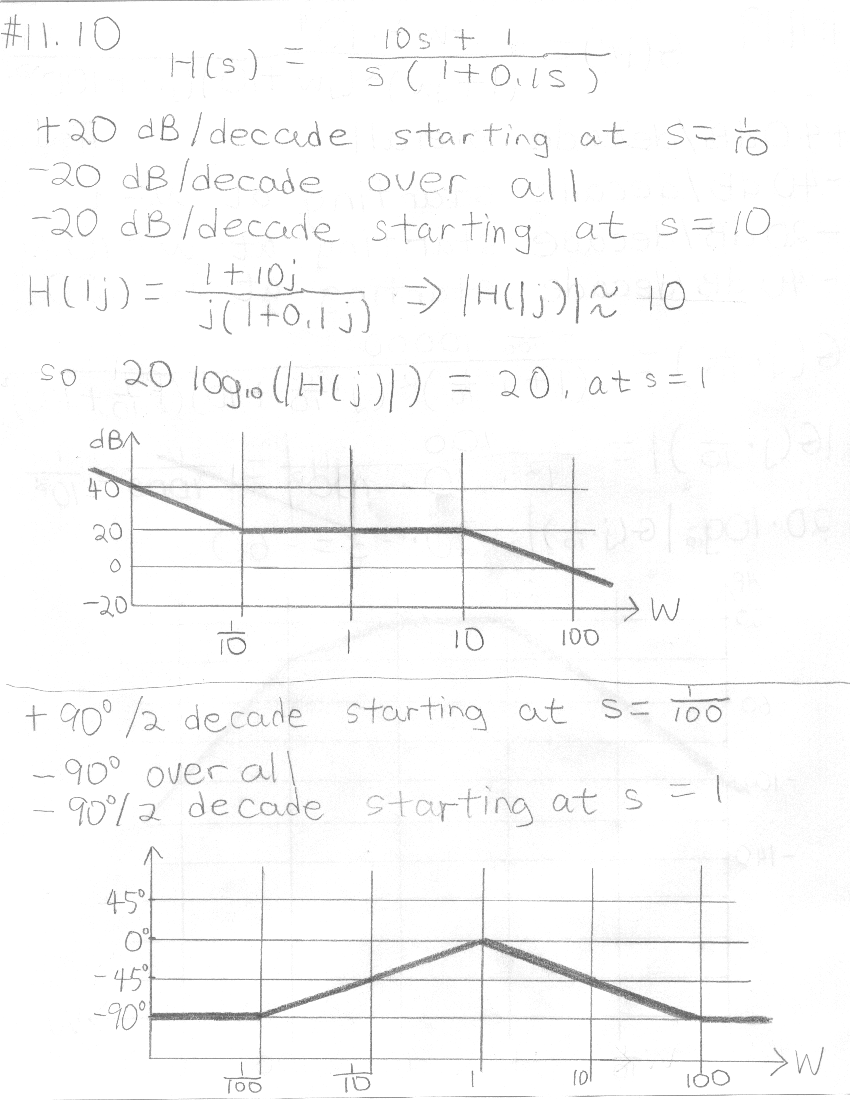 #11.10
H(s) = (10s + 1) / (s(1+0.1s))
+20 dB/decade starting at s= 1/10
-20 dB/decade over all
-20 dB/decade starting at s=10
H(1j) = (1+10j) / (j(1+0.1j)) ⇒ |H(1j)| ≈ 10
so 20 log₁₀(|H(j)|) = 20, at s=1
dB
40
20
0
-20
1/10 1 10 100 W
+90°/2 decade starting at s= 1/100
-90° over all
-90°/2 decade starting at s = 1
45°
0°
-45°
-90°
1/100 1/10 1 10 100 W